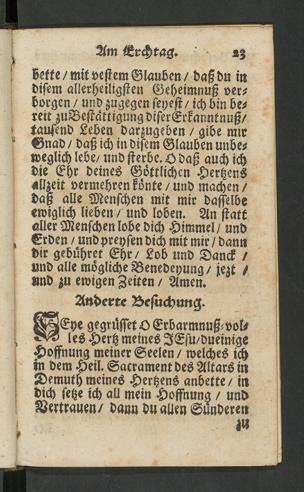 Am Erchtag. 23
bette / mit vestem Glauben / daß du in
disem allerheiligsten Geheimnuß ver-
borgen / und zugegen seyest / ich bin be-
reit zu Bestättigung diser Erkanntnuß /
tausend Leben darzugeben / gibe mir
Gnad / daß ich in disem Glauben unbe-
weglich lebe / und sterbe. O daß auch ich
die Ehr deines Göttlichen Hertzens
allzeit vermehren könte / und machen /
daß alle Menschen mit mir dasselbe
ewiglich lieben / und loben. An statt
aller Menschen lobe dich Himmel / und
Erden / und preysen dich mit mir / dann
dir gebühret Ehr / Lob und Danck /
und alle mögliche Benedeyung / jezt /
und zu ewigen Zeiten / Amen.
Anderte Besuchung.
SEye gegrüsset O Erbarmnuß-vol-
les Hertz meines JEsu / du einige
Hoffnung meiner Seelen / welches ich
in dem Heil. Sacrament des Altars in
Demuth meines Hertzens anbette / in
dich setze ich all mein Hoffnung / und
Vertrauen / dann du allen Sünderen
zu